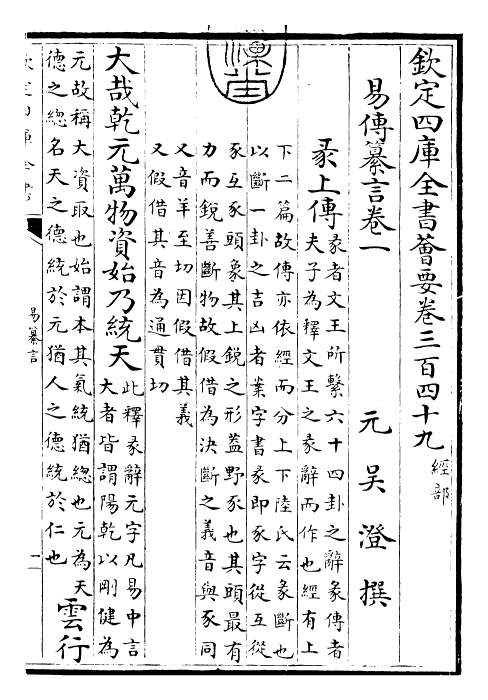 欽定四庫全書薈要卷三百四十九 經部
易傳纂言卷一
元 吳澄 撰
彖上傳
彖者文王所繫六十四卦之辭彖傳者
夫子為釋文王之彖辭而作也經有上
下二篇故傳亦依經而分上下陸氏云彖斷也
以斷一卦之吉凶者案字書彖即豕字從互從
豕互豕頭象其上銳之形蓋野豕也其頭最有
力而銳善斷物故假借為決斷之義音與豕同
又音羊至切因假借其義
又假借其音為通貫切
大哉乾元萬物資始乃統天
此釋彖辭元字凡易中言
大者皆謂陽乾以剛健為
元故稱大資取也始謂本其氣統猶總也元為天
德之總名天之德統於元猶人之德統於仁也
雲行
易纂言